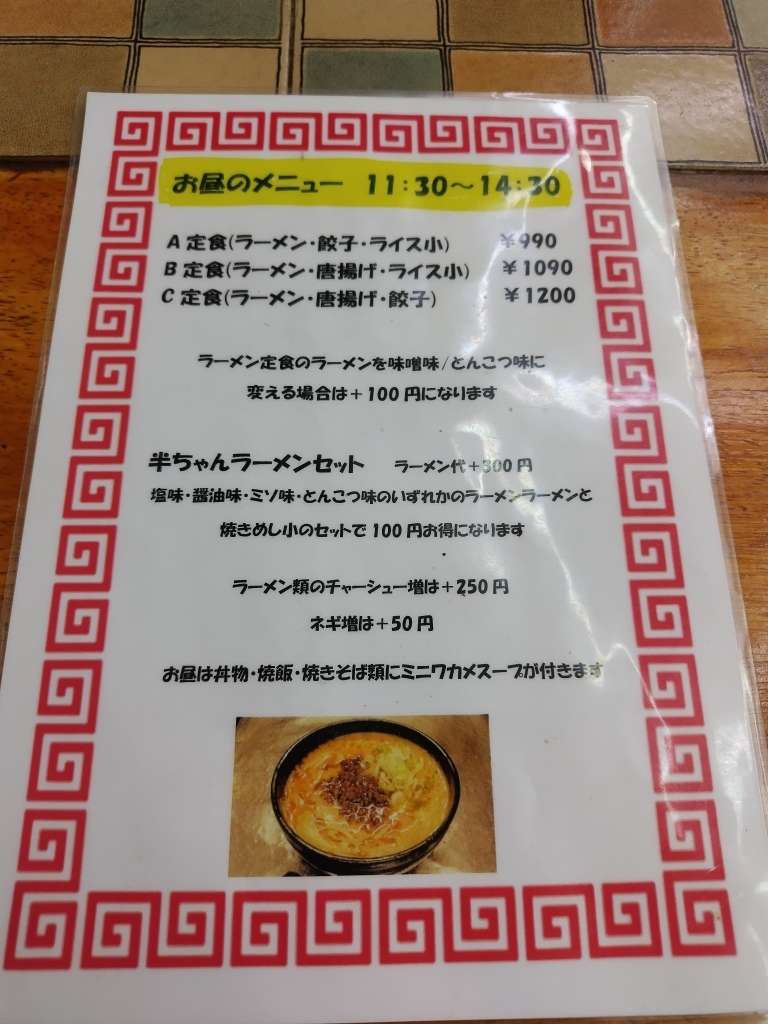 お昼のメニュー 11:30～14:30
A 定食(ラーメン・餃子・ライス小) ￥990
B 定食(ラーメン・唐揚げ・ライス小) ￥1090
C 定食(ラーメン・唐揚げ・餃子) ￥1200
ラーメン定食のラーメンを味噌味/とんこつ味に
変える場合は＋100 円になります
半ちゃんラーメンセット ラーメン代＋300 円
塩味・醤油味・ミソ味・とんこつ味のいずれかのラーメンラーメンと
焼きめし小のセットで 100 円お得になります
ラーメン類のチャーシュー増は＋250 円
ネギ増は＋50 円
お昼は丼物・焼飯・焼きそば類にミニワカメスープが付きます